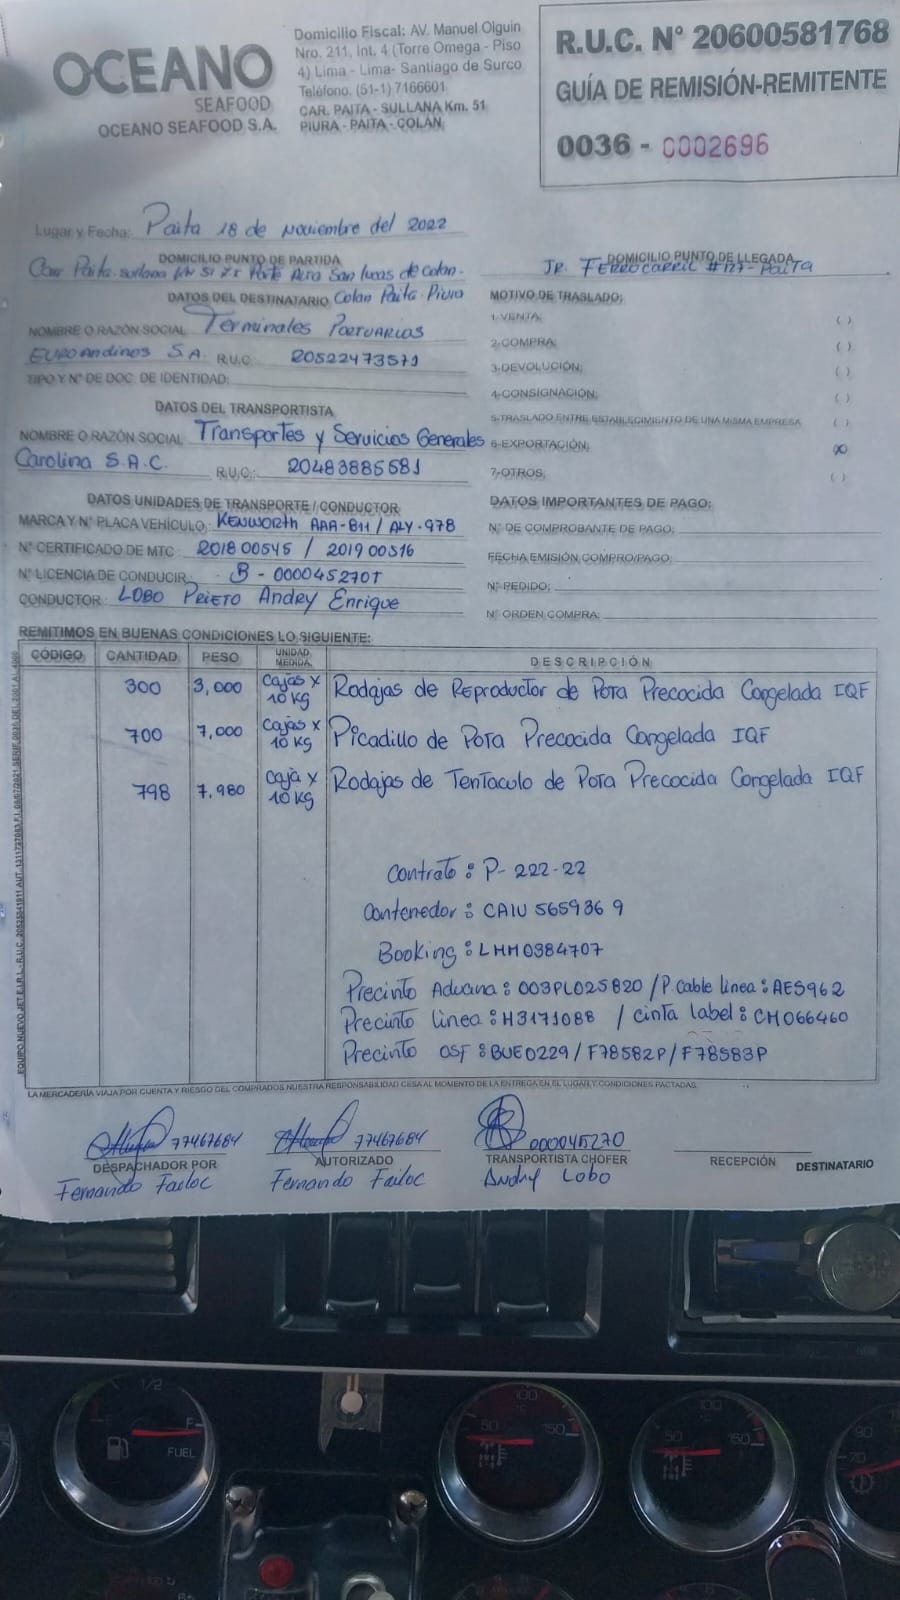 OCEANO
SEAFOOD
OCEANO SEAFOOD S.A.
Domicilio Fiscal: AV. Manuel Olguin
Nro. 211, Int. 4 (Torre Omega - Piso
4) Lima - Lima- Santiago de Surco
Teléfono. (51-1) 7166601
CAR. PAITA - SULLANA Km. 51
PIURA - PAITA - COLÁN
R.U.C. N° 20600581768
GUÍA DE REMISIÓN-REMITENTE
0036 - 0002696
Lugar y Fecha: Paita 18 de Noviembre del 2022
DOMICILIO PUNTO DE PARTIDA
Carr Paita-sullana KM 51 Parte Alta San Lucas de Colan-
Colan Paita Piura
DOMICILIO PUNTO DE LLEGADA
JR. FERROCARRIL #127-PAITA
DATOS DEL DESTINATARIO
NOMBRE O RAZÓN SOCIAL Terminales Portuarios
EuroAndinos S.A. R.U.C. 20522473571
TIPO Y N° DE DOC. DE IDENTIDAD:
DATOS DEL TRANSPORTISTA
NOMBRE O RAZÓN SOCIAL Transportes y Servicios Generales
Carolina S.A.C. R.U.C.: 20483885581
DATOS UNIDADES DE TRANSPORTE / CONDUCTOR
MARCA Y N° PLACA VEHÍCULO: KENWORTH AAA-811 / ALY-978
N° CERTIFICADO DE MTC: 201800545 / 201900316
N° LICENCIA DE CONDUCIR: B - 000045270T
CONDUCTOR: LOBO PRIETO Andry Enrique
MOTIVO DE TRASLADO:
1-VENTA: ( )
2-COMPRA: ( )
3-DEVOLUCIÓN: ( )
4-CONSIGNACIÓN: ( )
5-TRASLADO ENTRE ESTABLECIMIENTO DE UNA MISMA EMPRESA ( )
6-EXPORTACIÓN: (X)
7-OTROS: ( )
DATOS IMPORTANTES DE PAGO:
N° DE COMPROBANTE DE PAGO:
FECHA EMISIÓN COMPRO/PAGO:
N° PEDIDO:
N° ORDEN COMPRA:
REMITIMOS EN BUENAS CONDICIONES LO SIGUIENTE:
CÓDIGO CANTIDAD PESO UNIDAD MEDIDA DESCRIPCIÓN
300 3,000 Cajas x 10 KG Rodajas de Reproductor de Pota Precocida Congelada IQF
700 7,000 Cajas x 10 KG Picadillo de Pota Precocida Congelada IQF
798 7,980 Caja x 10 KG Rodajas de Tentaculo de Pota Precocida Congelada IQF
Contrato: P- 222-22
Contenedor: CAIU 565936 9
Booking: LHM0384707
Precinto Aduana: 003PL025820 / P. Cable linea: AE5962
Precinto linea: H3171088 / cinta label: CM066460
Precinto OSF: BUE0229 / F78582P / F78583P
LA MERCADERÍA VIAJA POR CUENTA Y RIESGO DEL COMPRADOS NUESTRA RESPONSABILIDAD CESA AL MOMENTO DE LA ENTREGA EN EL LUGAR Y CONDICIONES PACTADAS.
77467684
DESPACHADOR POR
Fernando Failoc
77467684
AUTORIZADO
Fernando Failoc
000045270
TRANSPORTISTA CHOFER
Andry Lobo
RECEPCIÓN DESTINATARIO
1/2
F
FUEL
50 100 150
°C
50 100 150
°C